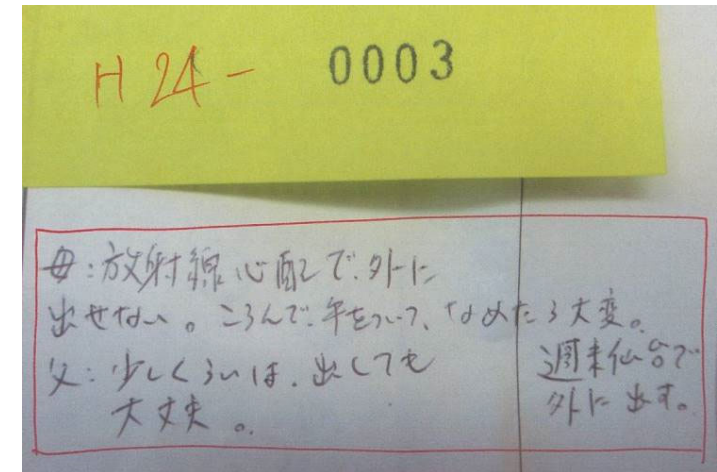 H 24- 0003
母:放射線心配で、外に
出せない。ころんで、手をついて、なめたら大変。
父:少しくらいは、出しても
大丈夫。
週末仙台で
外に出す。